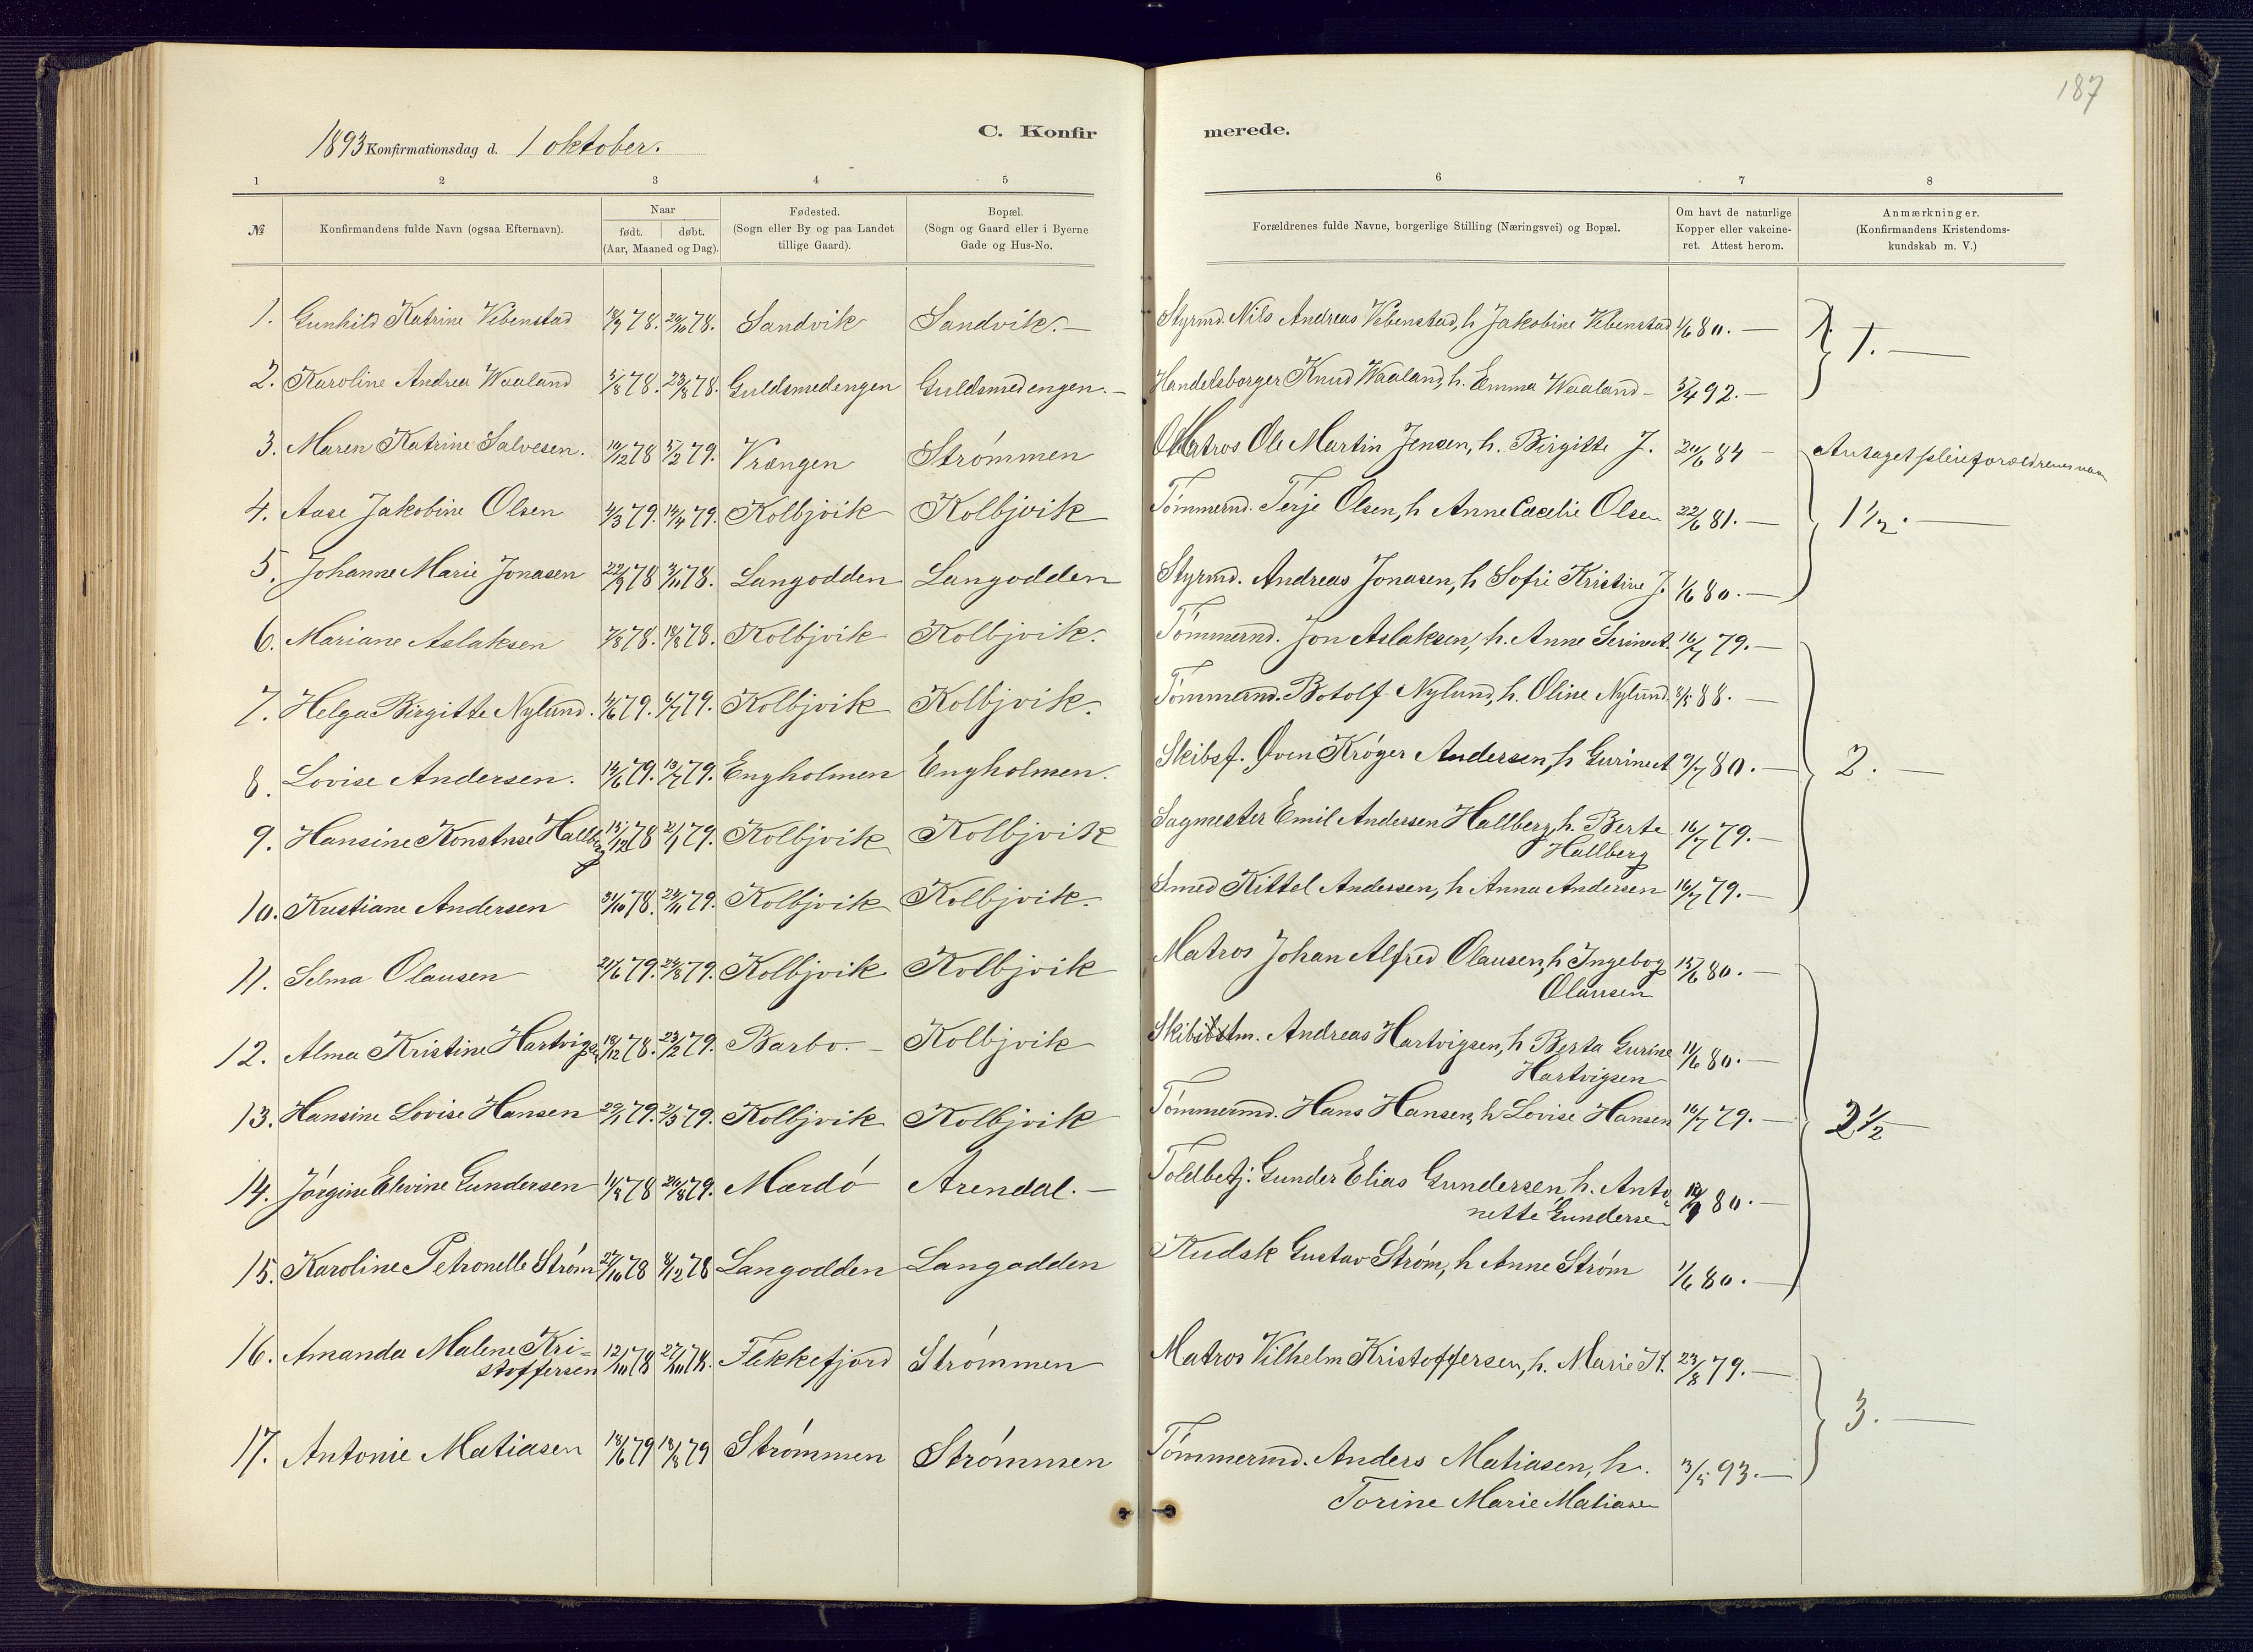 187
C. Konfir merede.
1893 Konfirmationsdag d. 1 oktober.
1 2 3 4 5 6 7 8
№
Konfirmandens fulde Navn (ogsaa Efternavn).
Naar
født. døbt.
(Aar, Maaned og Dag).
Fødested.
(Sogn eller By og paa Landet
tillige Gaard).
Bopæl.
(Sogn og Gaard eller i Byerne
Gade og Hus-No.
Forældrenes fulde Navne, borgerlige Stilling (Næringsvei) og Bopæl.
Om havt de naturlige
Kopper eller vakcine-
ret. Attest herom.
Anmærkninger.
(Konfirmandens Kristendoms-
kundskab m. V.)
1. Gunhild Katrine Vebenstad 18/9 78. 20/10 78. Sandvik Sandvik.— Styrmd. Nils Andreas Vebenstad, h Jakobine Vebenstad 1/6 80.—
1.—
2. Karoline Andrea Waaland 5/8 78. 23/8 78. Guldsmedengen Guldsmedengen.— Handelsborger Knud Waaland, h. Emma Waaland— 5/4 92.—
3. Maren Katrine Salvesen. 10/12 78 5/2 79. Vrængen Strømmen Matros Ole Martin Jensen, h. Birgitte J. 20/6 84— Antaget pleieforældrenes navn
4. Aase Jakobine Olsen 4/3 79. 14/4 79. Kolbjvik Kolbjvik Tømmermd. Terje Olsen, h Anne Cecelie Olsen 22/6 81.— 1½.—
5. Johanne Marie Jonasen 22/9 78 3/11 78. Langodden Langodden Styrmd. Andreas Jonasen, h Sofie Kristine J. 1/6 80.—
6. Mariane Aslaksen 7/8 78. 18/8 78. Kolbjvik Kolbjvik. Tømmermd. Jon Aslaksen, h. Anne Serine A. 16/7 79.—
7. Helga Birgitte Nylund. 4/6 79. 6/7 79. Kolbjvik Kolbjvik. Tømmermd. Botolf Nylund, h. Oline Nylund. 3/5 88.—
8. Lovise Andersen. 14/6 79. 13/7 79. Engholmen Engholmen. Skibsf. Øven Krøger Andersen, h Gurine A 9/7 80.— 2.—
9. Hansine Konstnse Hallberg 15/12 78 2/1 79. Kolbjvik Kolbjvik Sagmester Emil Andersen Hallberg, h. Berte 16/7 79.—
Hallberg
10. Kristiane Andersen 31/10 78. 24/11 79. Kolbjvik Kolbjvik. Smed Kittel Andersen, h Anna Andersen 16/7 79.—
11. Selma Olausen 21/6 79. 24/8 79. Kolbjvik Kolbjvik Matros Johan Alfred Olausen, h Ingebog 15/6 80.—
Olausen
12. Alma Kristine Hartvigsen 18/12 78. 23/2 79. Barbo.— Kolbjvik Skibstm. Andreas Hartvigsen, h Berta Gurine 11/6 80.—
Hartvigsen
13. Hansine Lovise Hansen 29/1 79. 2/3 79. Kolbjvik Kolbjvik Tømmermd. Hans Hansen, h Lovise Hansen 16/7 79.— 2½—
14. Jørgine Elevine Gundersen 11/8 78 20/8 79. Mærdø Arendal.— Toldbetj. Gunder Elias Gundersen, h. Anto 80.—
nette Gundersen
15. Karoline Petronelle Strøm 27/10 78 8/12 78 Langodden Langodden Kudsk Gustav Strøm, h Anne Strøm 1/6 80.—
16. Amanda Malene Kri- 12/10 78 27/10 78. Flekkefjord Strømmen Matros Vilhelm Kristoffersen, h. Marie K. 23/8 79.—
stoffersen
3.—
17. Antonie Matiasen 18/6 79 18/8 79 Strømmen Strømmen Tømmermd. Anders Matiasen, h. 3/5 93.—
Torine Marie Matiasen